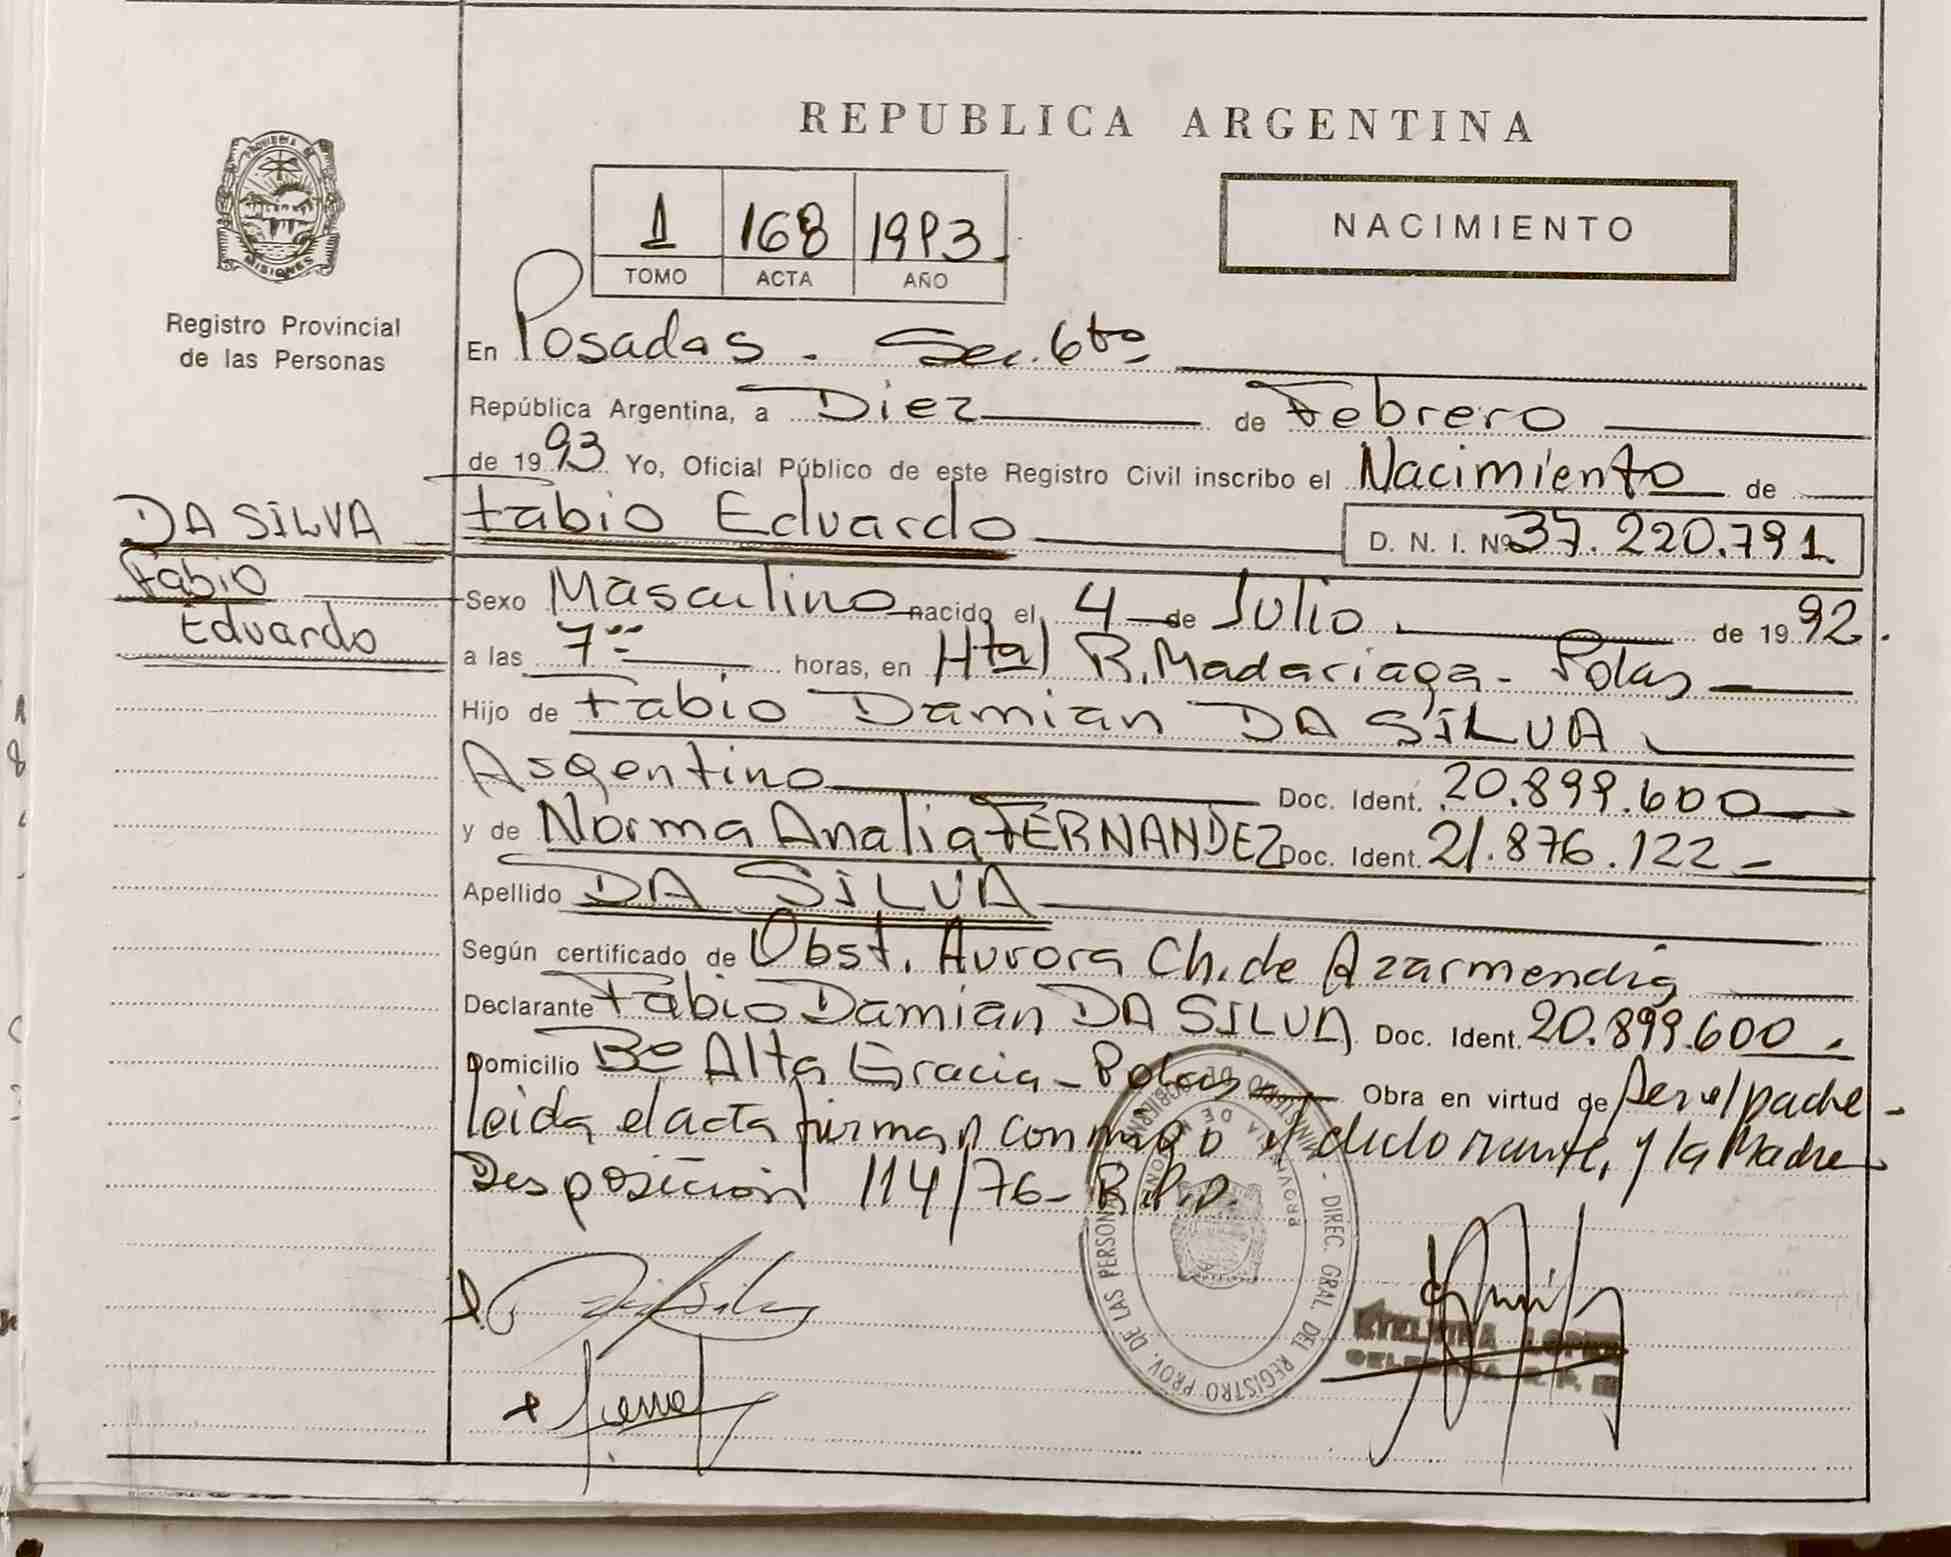 REPUBLICA ARGENTINA
PROVINCIA DE
MISIONES
Registro Provincial
de las Personas
1 168 1993
TOMO ACTA AÑO
NACIMIENTO
En Posadas. Sec. 6ta
República Argentina, a Diez de Febrero
de 1993 Yo, Oficial Público de este Registro Civil inscribo el Nacimiento de
DA SILVA
Fabio
Eduardo
Fabio Eduardo D. N. I. Nº 37.220.791.
Sexo Masculino nacido el 4 de Julio de 1992.
a las 7 horas, en Htal R. Madariaga - Pdas
Hijo de Fabio Damian DA SILVA
Argentino Doc. Ident. 20.899.600
y de Norma Analia FERNANDEZ Doc. Ident. 21.876.122 -
Apellido DA SILVA
Según certificado de Obst. Aurora Ch. de Azarmendia
Declarante Fabio Damian DA SILVA Doc. Ident. 20.899.600.
Domicilio Bº Alta Gracia - Pdas Obra en virtud de ser el padre -
leida el acta firman conmigo el declarante, y la Madre
Disposición 114/76 - R.P.P.
MINISTERIO DE GOBIERNO - DIREC. GRAL. DEL REGISTRO PROV. DE LAS PERSONAS
PROVINCIA DE MISIONES
LOPEZ